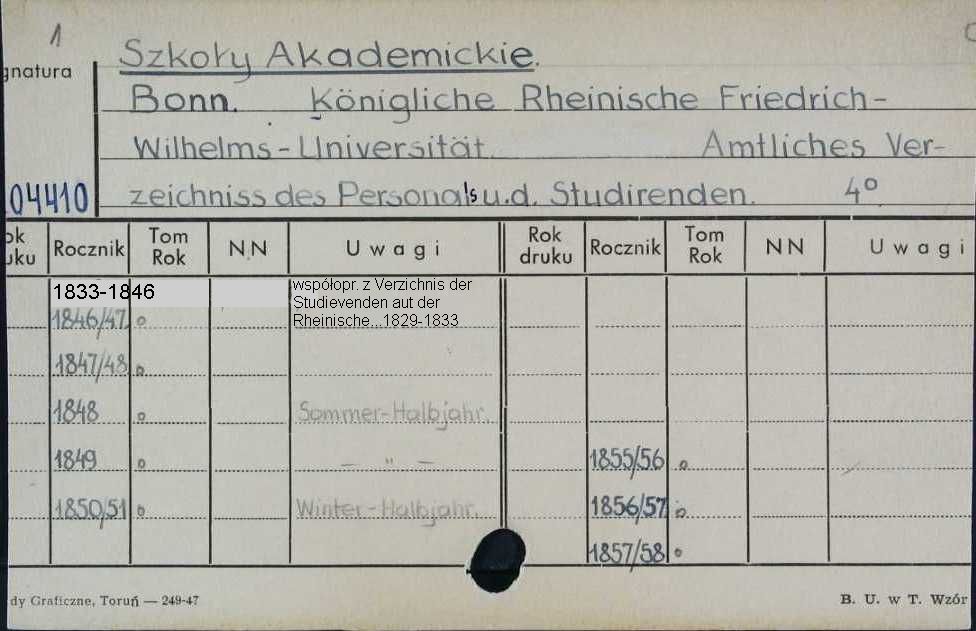 1
Szkoły Akademickie.
gnatura
Bonn. Königliche Rheinische Friedrich-
Wilhelms-Universität. Amtliches Ver-
04410 zeichniss des Personals u.d. Studirenden. 4°
ok uku Rocznik Tom Rok N.N Uwagi Rok druku Rocznik Tom Rok NN Uwagi
1833-1846 współopr. z Verzichnis der
Studievenden aut der
1846/47 o Rheinische...1829-1833
1847/48 o
1848 o Sommer-Halbjahr.
1849 o — " — 1855/56 o
1850/51 o Winter-Halbjahr. 1856/57 o
1857/58 o
dy Graficzne, Toruń — 249-47 B. U. w T. Wzór